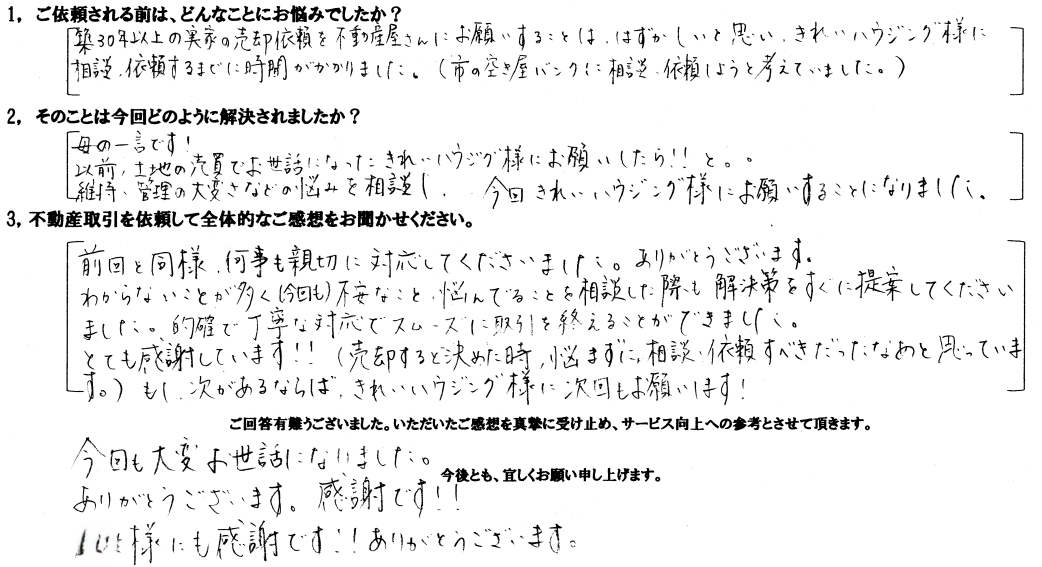 1, ご依頼される前は、どんなことにお悩みでしたか?
築30年以上の実家の売却依頼を不動産屋さんにお願いすることは、はずかしいと思い、きれいハウジング様に
相談、依頼するまでに時間がかかりました。(市の空き屋バンクに相談、依頼しようと考えていました。)
2, そのことは今回どのように解決されましたか?
母の一言です!
以前、土地の売買でお世話になったきれいハウジング様にお願いしたら!!と。。
維持、管理の大変さなどの悩みを相談し、今回きれいハウジング様にお願いすることになりました。
3, 不動産取引を依頼して全体的なご感想をお聞かせください。
前回と同様、何事も親切に対応してくださいました。ありがとうございます。
わからないことが多く(今回も)不安なこと、悩んでることを相談した際も解決策をすぐに提案してください
ました。的確で丁寧な対応でスムーズに取引を終えることができました。
とても感謝しています!!(売却すると決めた時、悩まずに、相談、依頼すべきだったなあと思っていま
す。)もし、次があるならば、きれいハウジング様に次回もお願いします!
ご回答有難うございました。いただいたご感想を真摯に受け止め、サービス向上への参考とさせて頂きます。
今回も大変お世話になりました。
今後とも、宜しくお願い申し上げます。
ありがとうございます。感謝です!!
様にも感謝です!!ありがとうございます。